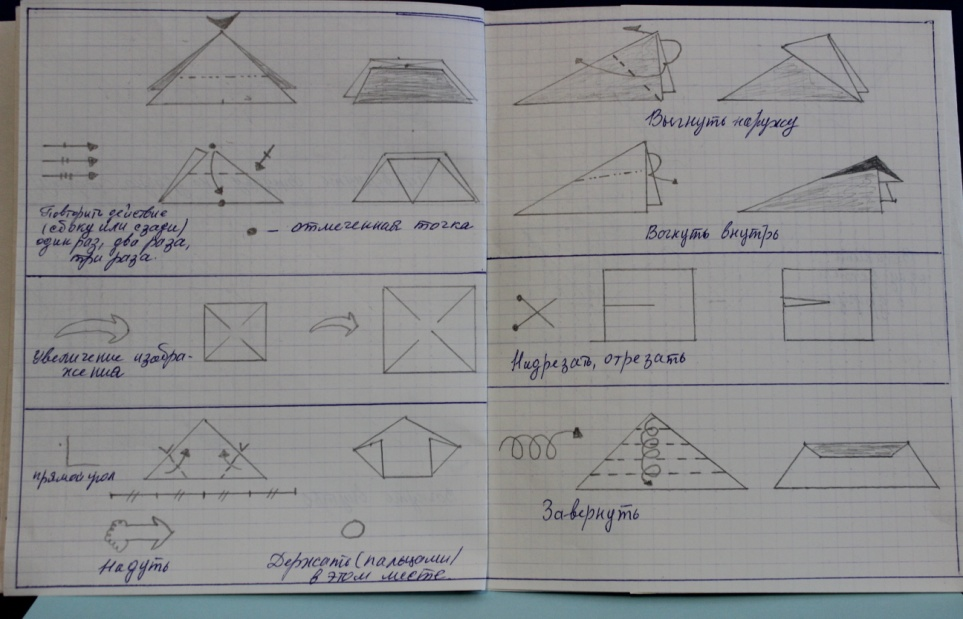 Повторить действие
(сбоку или сзади)
один раз, два раза,
три раза.
– отмеченная точка
Увеличение изобра-
жения
прямой угол
Надуть
Держать (пальцами)
в этом месте.
Выгнуть наружу
Вогнуть внутрь
Надрезать, отрезать
Завернуть